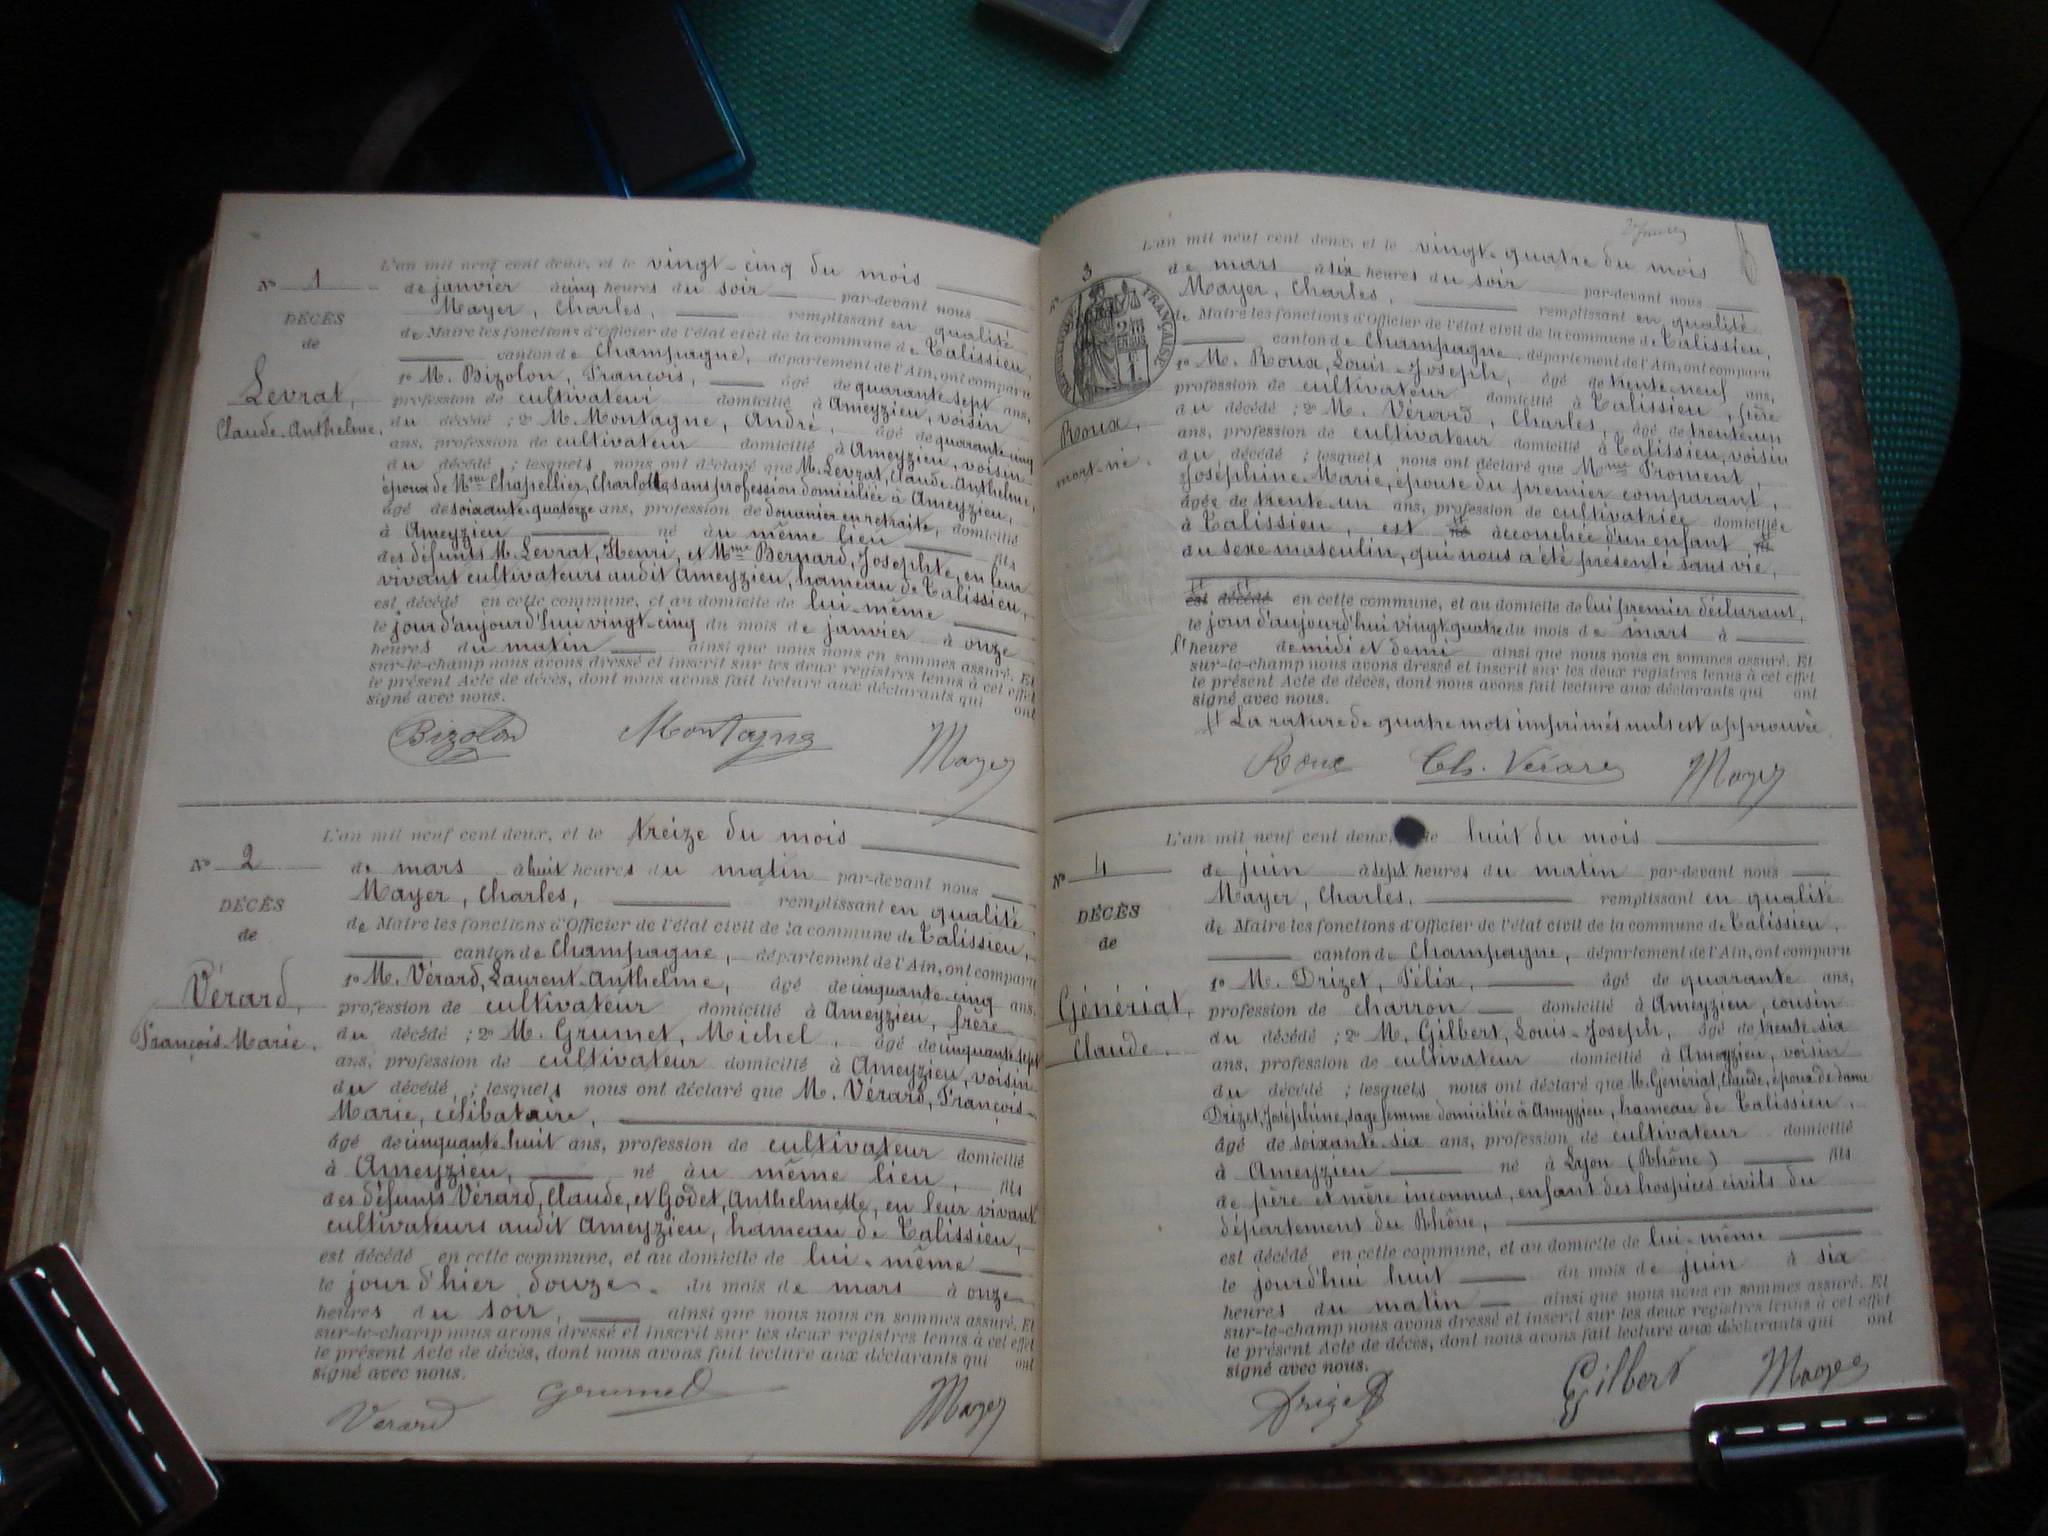 N° 1
DÉCÈS
de
Levrat,
Claude-Anthelme.
L'an mil neuf cent deux, et le vingt-cinq du mois
de janvier à cinq heures du soir par-devant nous
Mayer, Charles, remplissant en qualité
de Maire les fonctions d'Officier de l'état civil de la commune de Talissieu,
canton de Champagne, département de l'Ain, ont comparu
1° M. Bizolon, François, âgé de quarante-sept ans,
profession de cultivateur domicilié à Ameyzieu, voisin
du décédé ; 2° M. Montagne, André, âgé de quarante-cinq
ans, profession de cultivateur domicilié à Ameyzieu, voisin
du décédé ; lesquels nous ont déclaré que M. Levrat, Claude-Anthelme,
époux de Mme Chapellier, Charlotte, sans profession domiciliée à Ameyzieu,
âgé de soixante-quatorze ans, profession de douanier en retraite, domicilié
à Ameyzieu né au même lieu fils
des défunts M. Levrat, Henri, et Mme Bernard, Josephte, en leur
vivant cultivateurs audit Ameyzieu, hameau de Talissieu,
est décédé en cette commune, et au domicile de lui-même
le jour d'aujourd'hui vingt-cinq du mois de janvier à onze
heures du matin ainsi que nous nous en sommes assuré. Et
sur-le-champ nous avons dressé et inscrit sur les deux registres tenus à cet effet
le présent Acte de décès, dont nous avons fait lecture aux déclarants qui ont
signé avec nous.
Bizolon Montagne Mayer
N° 2
DÉCÈS
de
Vérard,
François-Marie.
L'an mil neuf cent deux, et le treize du mois
de mars à huit heures du matin par-devant nous
Mayer, Charles, remplissant en qualité
de Maire les fonctions d'Officier de l'état civil de la commune de Talissieu,
canton de Champagne, département de l'Ain, ont comparu
1° M. Vérard, Laurent-Anthelme, âgé de cinquante-cinq ans,
profession de cultivateur domicilié à Ameyzieu, frère
du décédé ; 2° M. Grumet, Michel, âgé de cinquante-sept
ans, profession de cultivateur domicilié à Ameyzieu, voisin
du décédé, ; lesquels nous ont déclaré que M. Vérard, François-
Marie, célibataire,
âgé de cinquante-huit ans, profession de cultivateur domicilié
à Ameyzieu, né au même lieu, fils
des défunts Vérard, Claude, et Godet, Anthelmette, en leur vivant
cultivateurs audit Ameyzieu, hameau de Talissieu,
est décédé en cette commune, et au domicile de lui-même
le jour d'hier douze du mois de mars à onze
heures du soir, ainsi que nous nous en sommes assuré. Et
sur-le-champ nous avons dressé et inscrit sur les deux registres tenus à cet effet
le présent Acte de décès, dont nous avons fait lecture aux déclarants qui ont
signé avec nous.
Verard Grumet Mayer
N° 3
FRANÇAISE
Roux,
mort-né.
L'an mil neuf cent deux, et le vingt-quatre du mois
de mars à six heures du soir par-devant nous
Mayer, Charles, remplissant en qualité
de Maire les fonctions d'Officier de l'état civil de la commune de Talissieu,
canton de Champagne, département de l'Ain, ont comparu
1° M. Roux, Louis-Joseph, âgé de trente-neuf ans,
profession de cultivateur domicilié à Talissieu, père
du décédé ; 2° M. Vérard, Charles, âgé de trente-un
ans, profession de cultivateur domicilié à Talissieu, voisin
du décédé ; lesquels nous ont déclaré que Mme Froment,
Joséphine-Marie, épouse du premier comparant,
âgée de trente-un ans, profession de cultivatrice domiciliée
à Talissieu, est né accouchée d'un enfant fils
du sexe masculin, qui nous a été présenté sans vie,
est décédé en cette commune, et au domicile de lui premier déclarant,
le jour d'aujourd'hui vingt-quatre du mois de mars à
l'heure de midi et demi ainsi que nous nous en sommes assuré. Et
sur-le-champ nous avons dressé et inscrit sur les deux registres tenus à cet effet
le présent Acte de décès, dont nous avons fait lecture aux déclarants qui ont
signé avec nous.
La rature de quatre mots imprimés nuls est approuvée
Roux Ch. Vérard Mayer
N° 4
DÉCÈS
de
Génériat,
Claude.
L'an mil neuf cent deux, le huit du mois
de juin à sept heures du matin par-devant nous
Mayer, Charles, remplissant en qualité
de Maire les fonctions d'Officier de l'état civil de la commune de Talissieu,
canton de Champagne, département de l'Ain, ont comparu
1° M. Drizet, Félix, âgé de quarante ans,
profession de charron domicilié à Ameyzieu, cousin
du décédé ; 2° M. Gilbert, Louis-Joseph, âgé de trente-six
ans, profession de cultivateur domicilié à Ameyzieu, voisin
du décédé ; lesquels nous ont déclaré que M. Génériat, Claude, époux de dame
Drizet, Joséphine, sage-femme domiciliée à Ameyzieu, hameau de Talissieu,
âgé de soixante-six ans, profession de cultivateur domicilié
à Ameyzieu né à Lyon (Rhône) fils
de père et mère inconnus, enfant des hospices civils du
département du Rhône,
est décédé en cette commune, et au domicile de lui-même
le jourd'hui huit du mois de juin à six
heures du matin ainsi que nous nous en sommes assuré. Et
sur-le-champ nous avons dressé et inscrit sur les deux registres tenus à cet effet
le présent Acte de décès, dont nous avons fait lecture aux déclarants qui ont
signé avec nous.
Drizet Gilbert Mayer